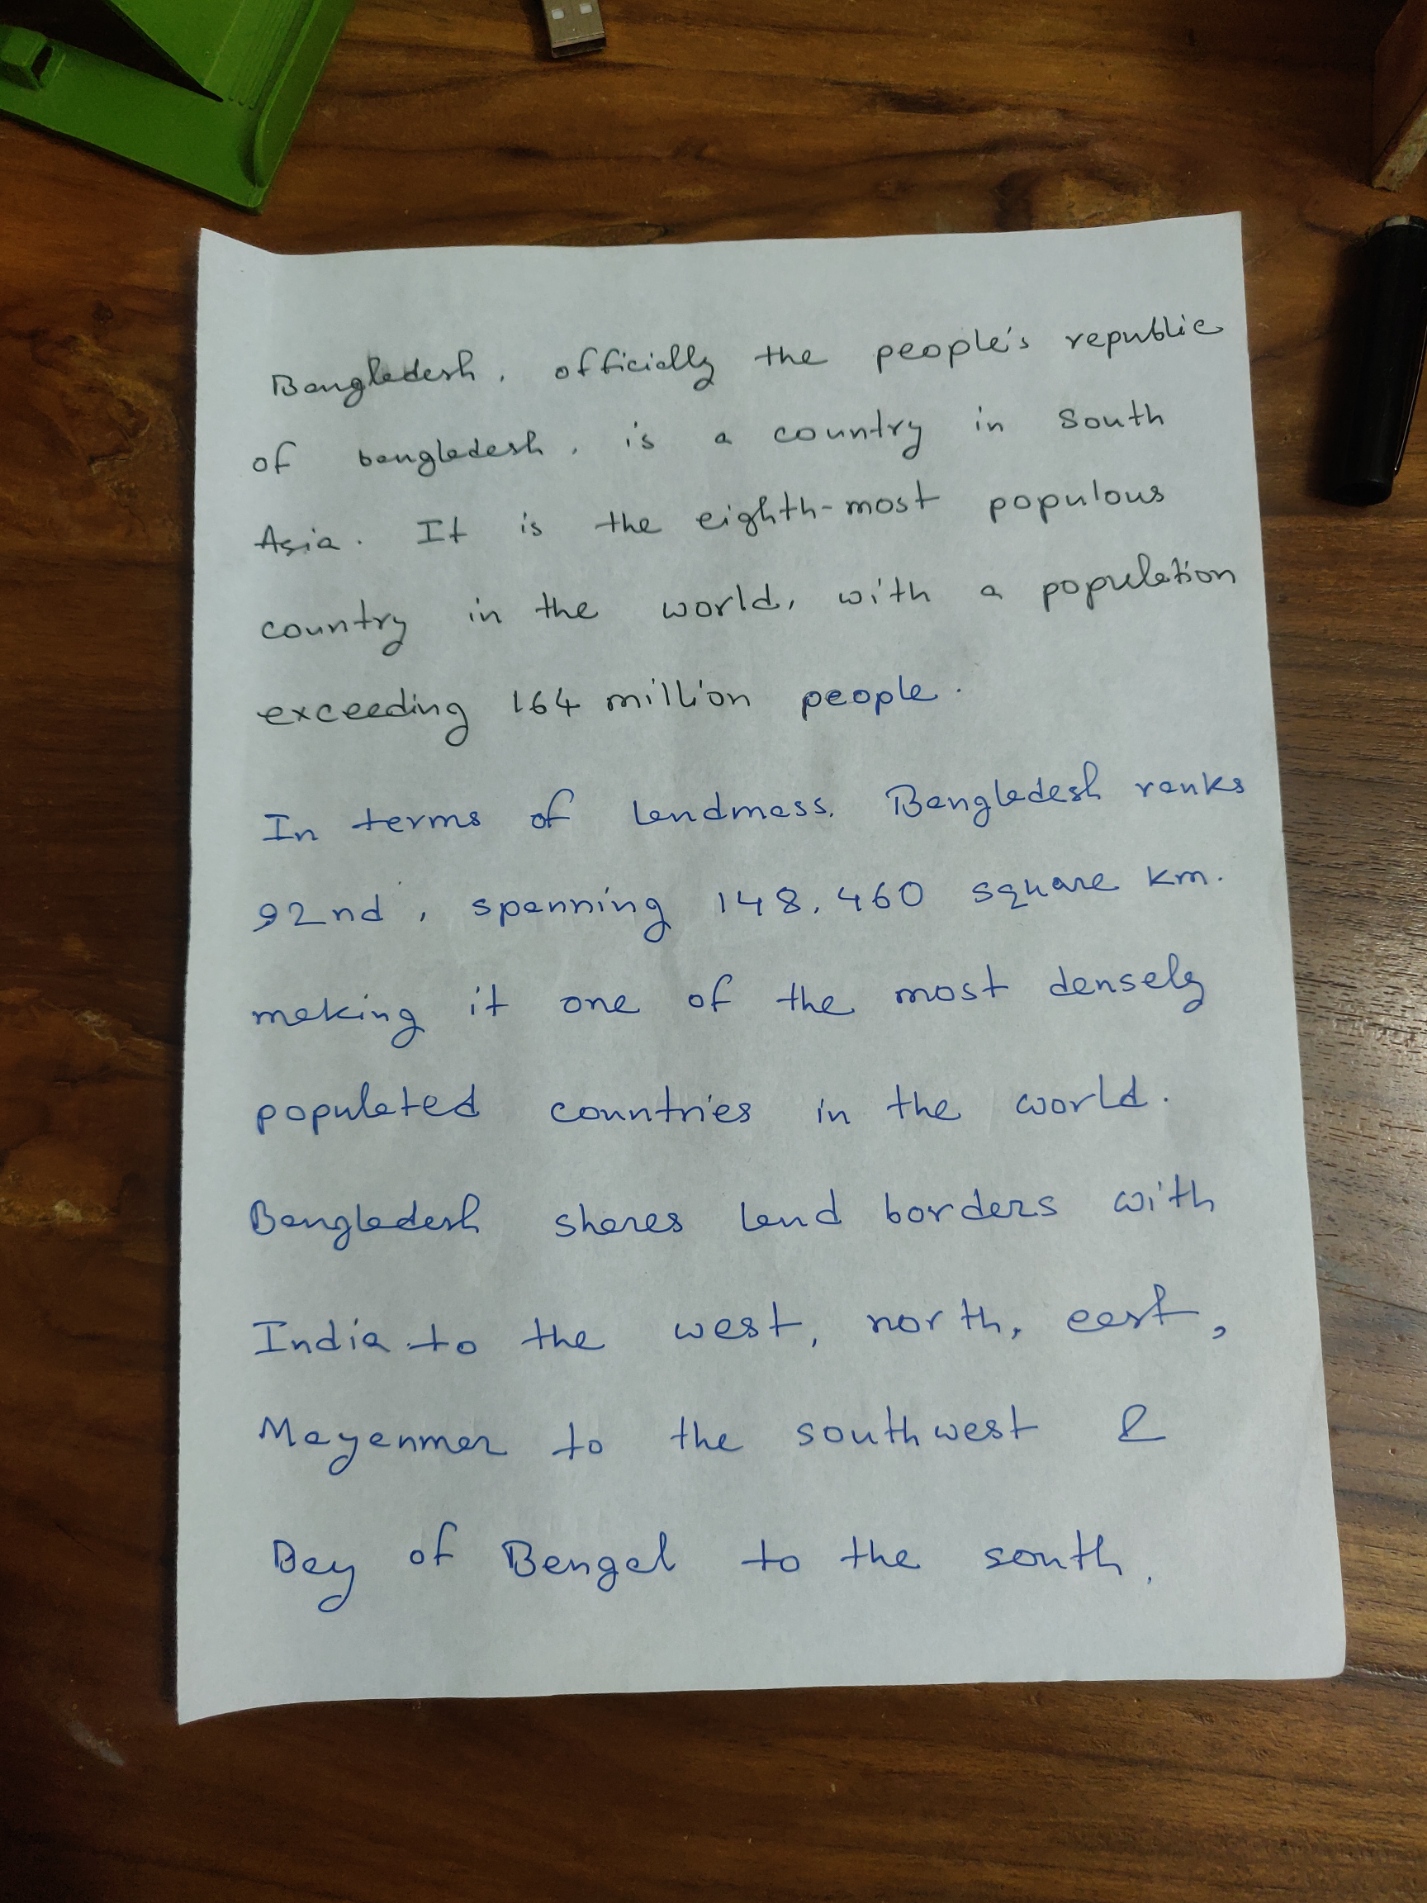 Bangladesh, officially the people's republic
of bangladesh, is a country in South
Asia. It is the eighth-most populous
country in the world, with a population
exceeding 164 million people.
In terms of landmass, Bangladesh ranks
92nd, spanning 148,460 square km.
making it one of the most densely
populated countries in the world.
Bangladesh shares land borders with
India to the west, north, east,
Mayanmar to the southwest &
Bay of Bengal to the south.